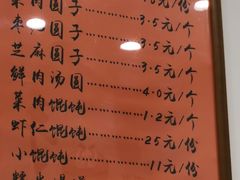 肉圆子……3.5元/个
枣 圆子……3.5元/个
芝麻圆子……3.5元/个
鲜肉汤圆……4.0元/个
菜肉馄饨……1.2元/个
虾仁馄饨……25元/份
小馄饨……11元/份